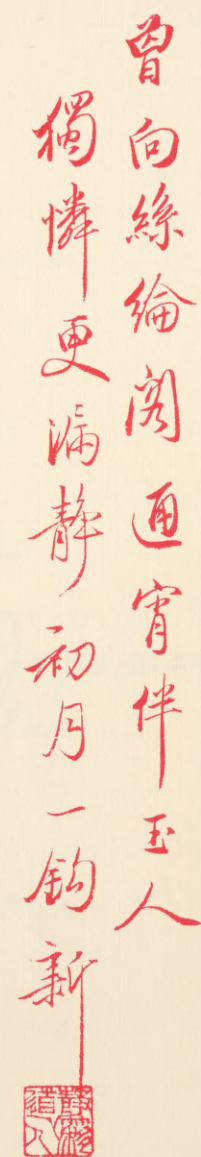 曾向絲綸閣通宵伴玉人
獨憐更漏靜初月一鈎新